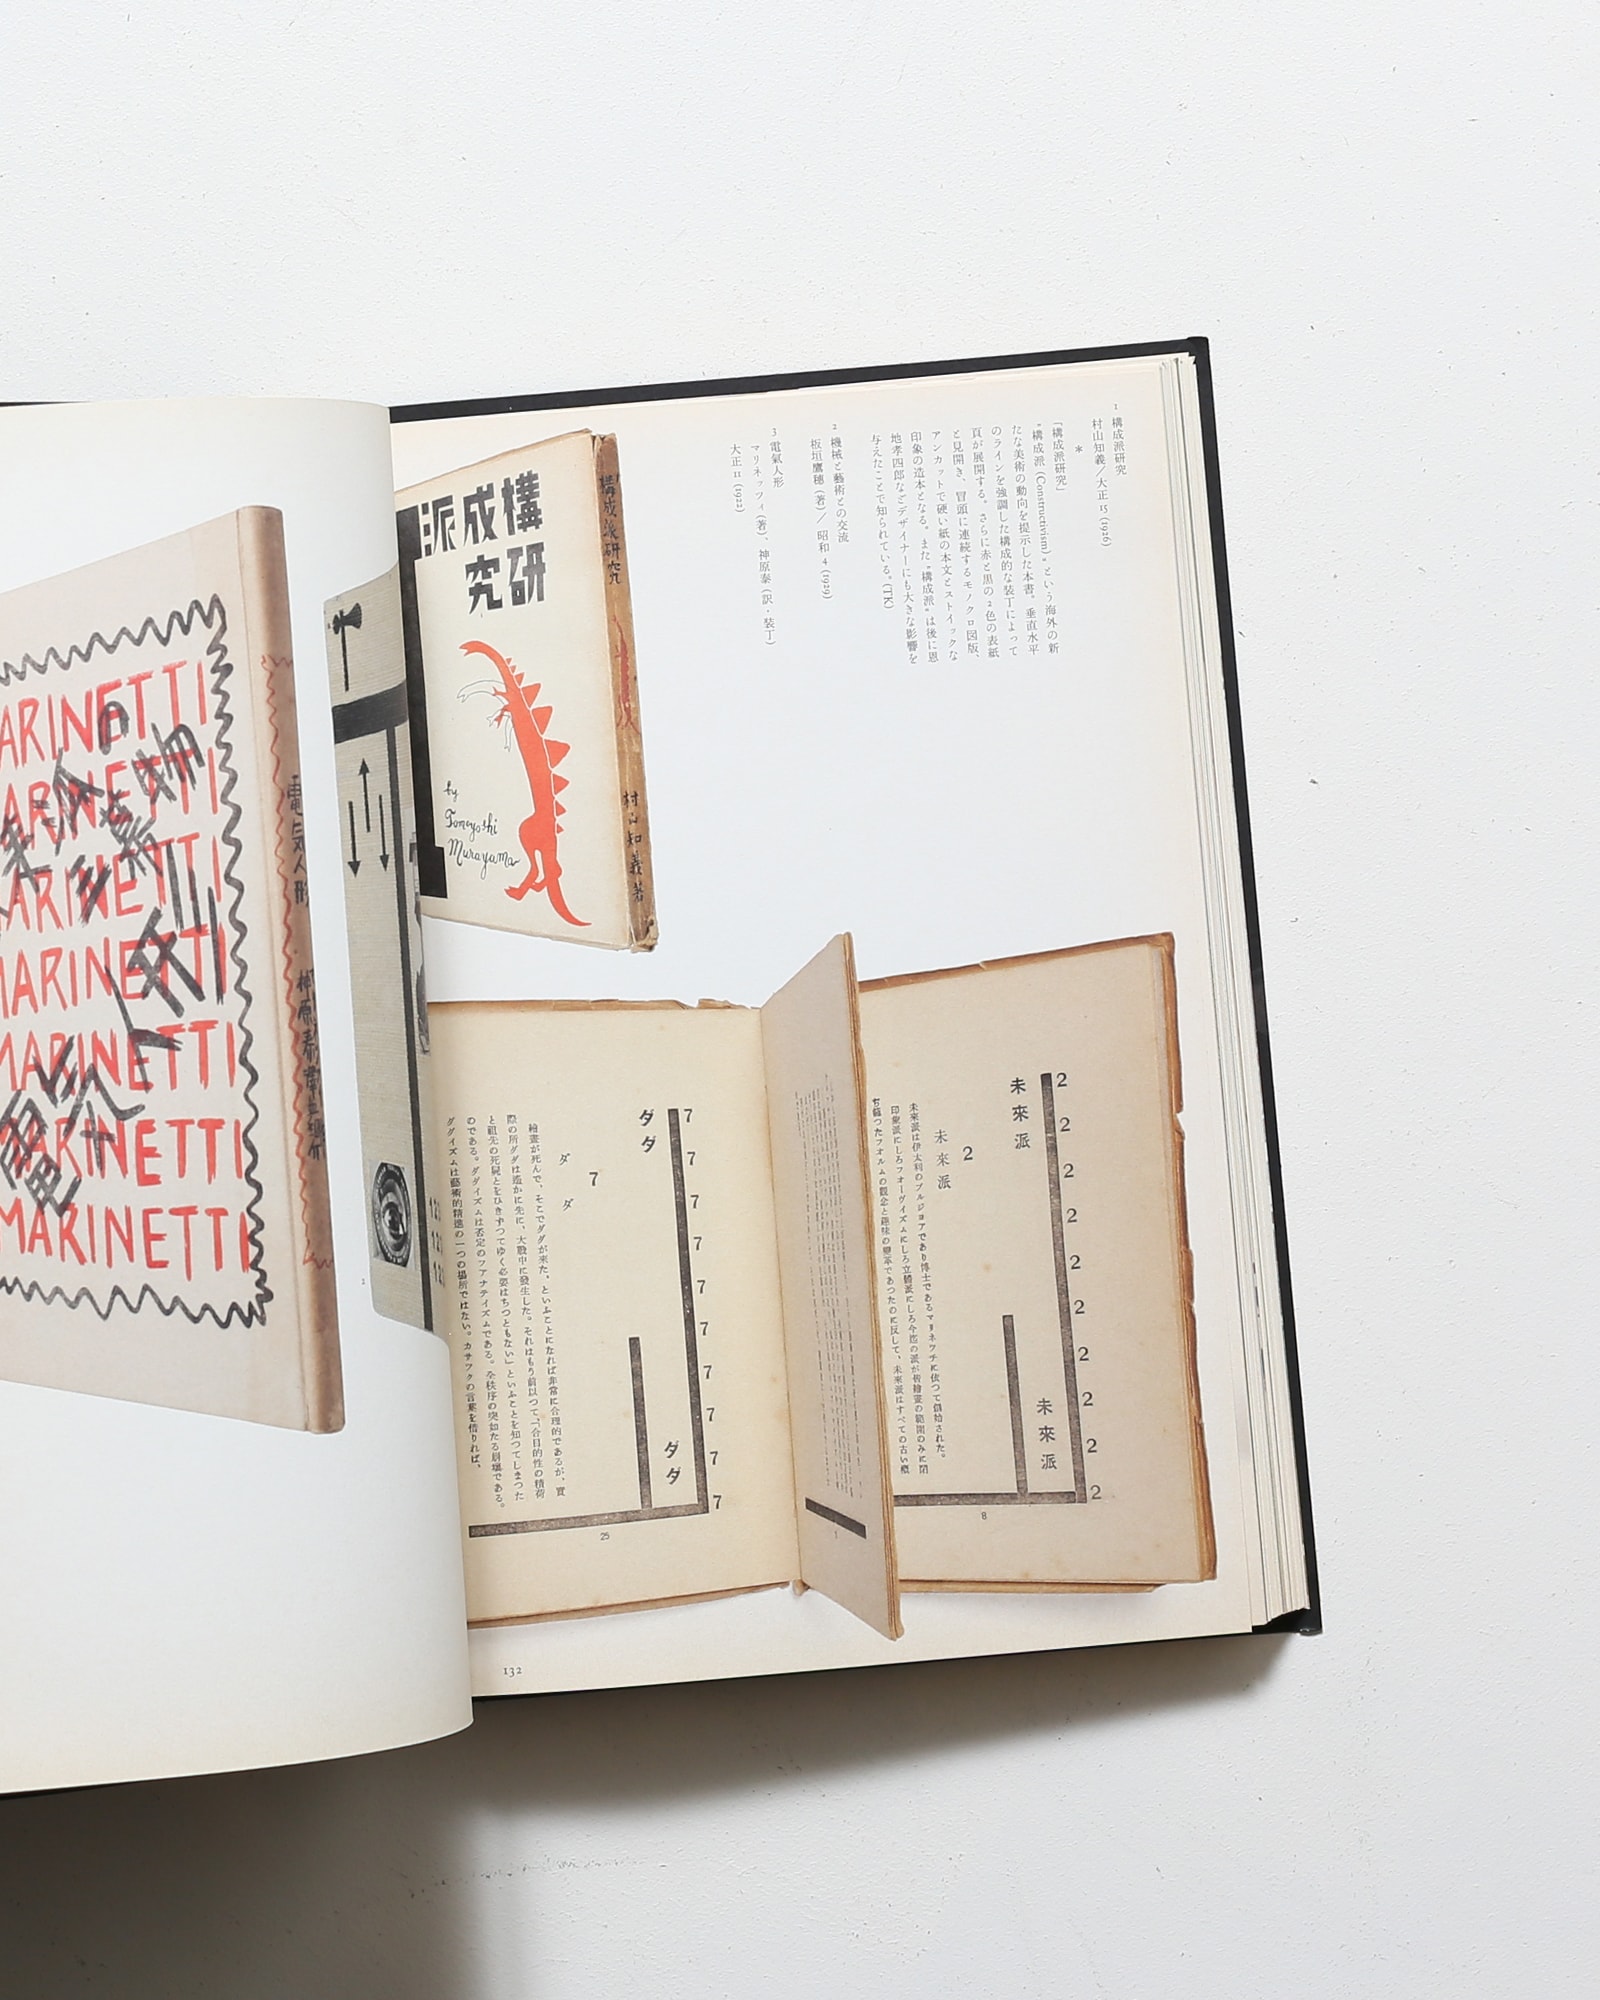 1 構成派研究
村山知義／大正15 (1926)
*
「構成派研究」
"構成派 (Constructivism)" という海外の新
たな美術の動向を提示した本書。垂直水平
のラインを強調した構成的な装丁によって
頁が展開する。さらに赤と黒の2色の表紙
と見開き、冒頭に連続するモノクロ図版、
アンカットで硬い紙の本文とストイックな
印象の造本となる。また"構成派"は後に恩
地孝四郎などデザイナーにも大きな影響を
与えたことで知られている。(TK)
2 機械と藝術との交流
板垣鷹穂（著）／ 昭和4 (1929)
3 電氣人形
マリネッツィ（著）、神原泰（訳・装丁）
大正11 (1922)
構成派
研究
by
Tomoyoshi
Murayama
構成派研究
村山知義著
MARINETTI
MARINETTI
MARINETTI
MARINETTI
MARINETTI
MARINETTI
MARINETTI
電気人形
2
2
2
2
2
2
2
2
2
2
未來派
未來派
2
未來派
未來派は伊太利のブルジョアであり博士であるマリネツチに依つて創始された。
印象派にしろフオーヴイズムにしろ立體派にしろ今迄の派が皆繪畫の範圍のみに閉
ぢ籠つたフオルムの觀念と趣味の變革であつたのに反して、未來派はすべての古い概
8
7
7
7
7
7
7
7
7
7
7
ダダ
ダダ
7
ダダ
繪畫が死んで、そこでダダが来た、といふことになれば非常に合理的であるが、實
際の所ダダは遙かに先に、大戰中に發生した。それはもう前以つて、「合目的性の積荷
と祖先の死屍とをひきずつてゆく必要はちつともない」といふことを知つてしまつた
のである。ダダイズムは否定のフアナテイズムである。全秩序の突如たる崩壞である。
ダダイズムは藝術的精進の一つの場所ではない。カサツクの言葉を借りれば、
25
132